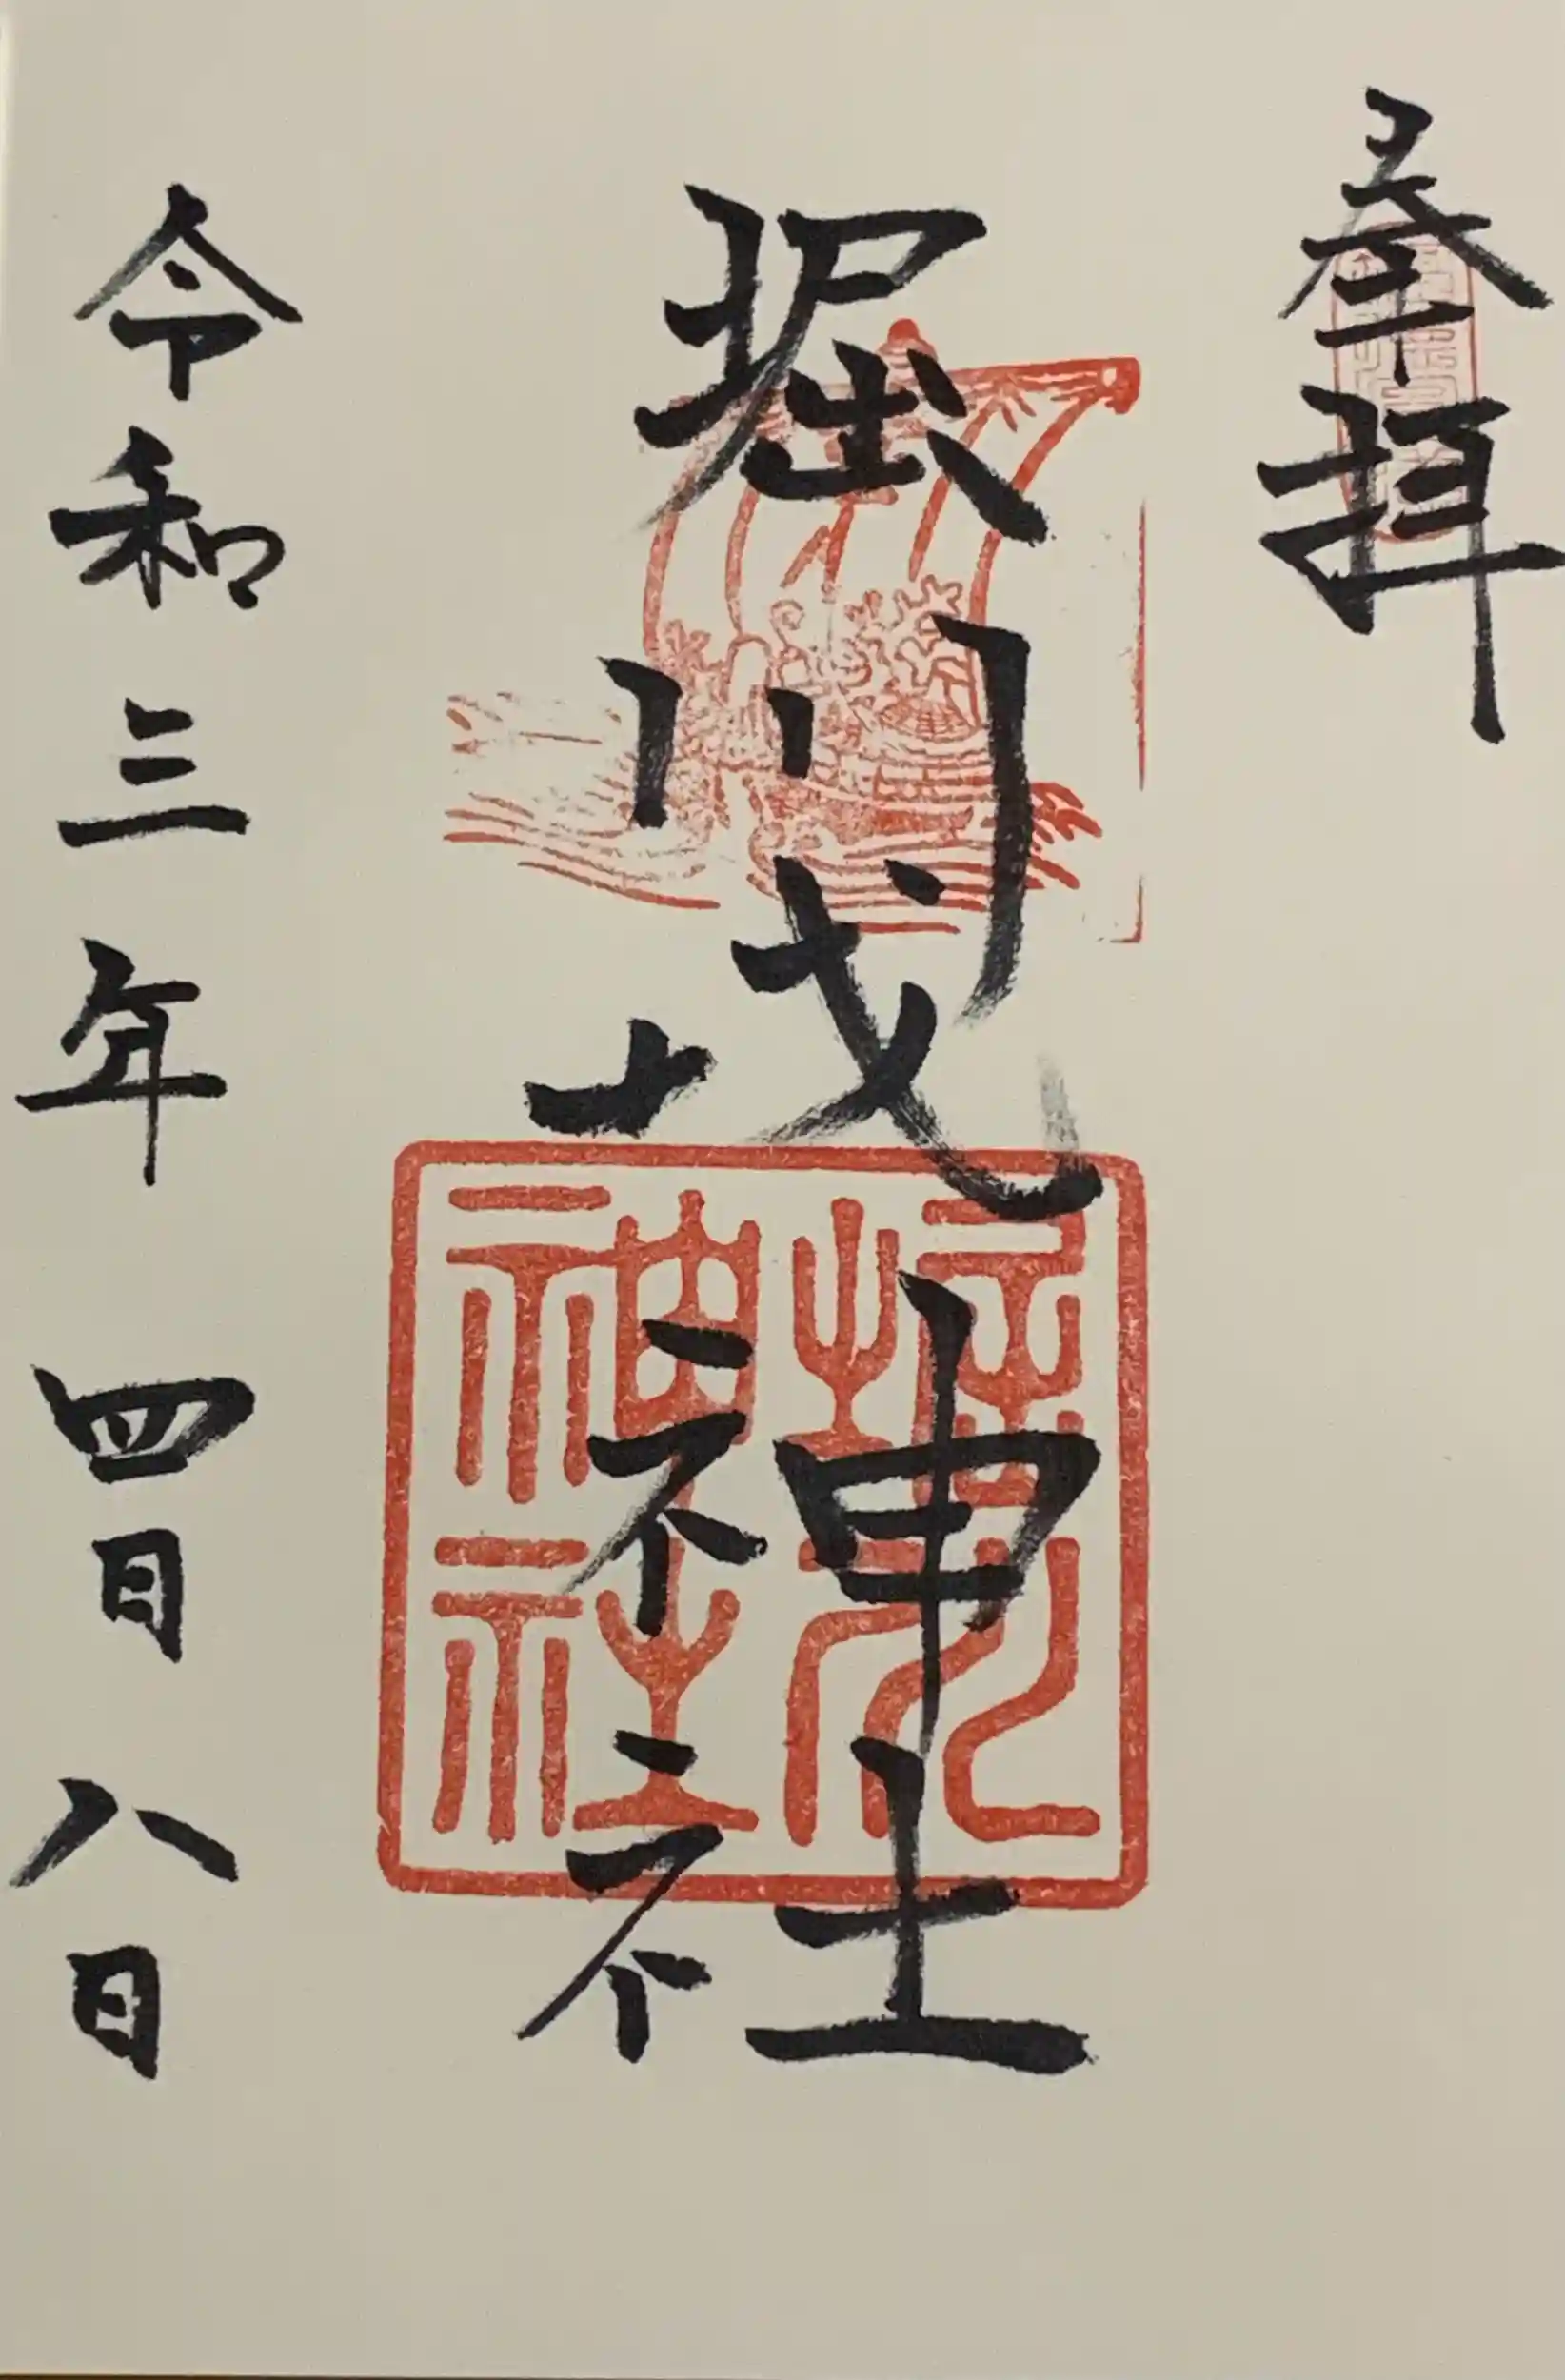 奉拝
堀川戎神社
堀川神社
令和三年 四月 八日